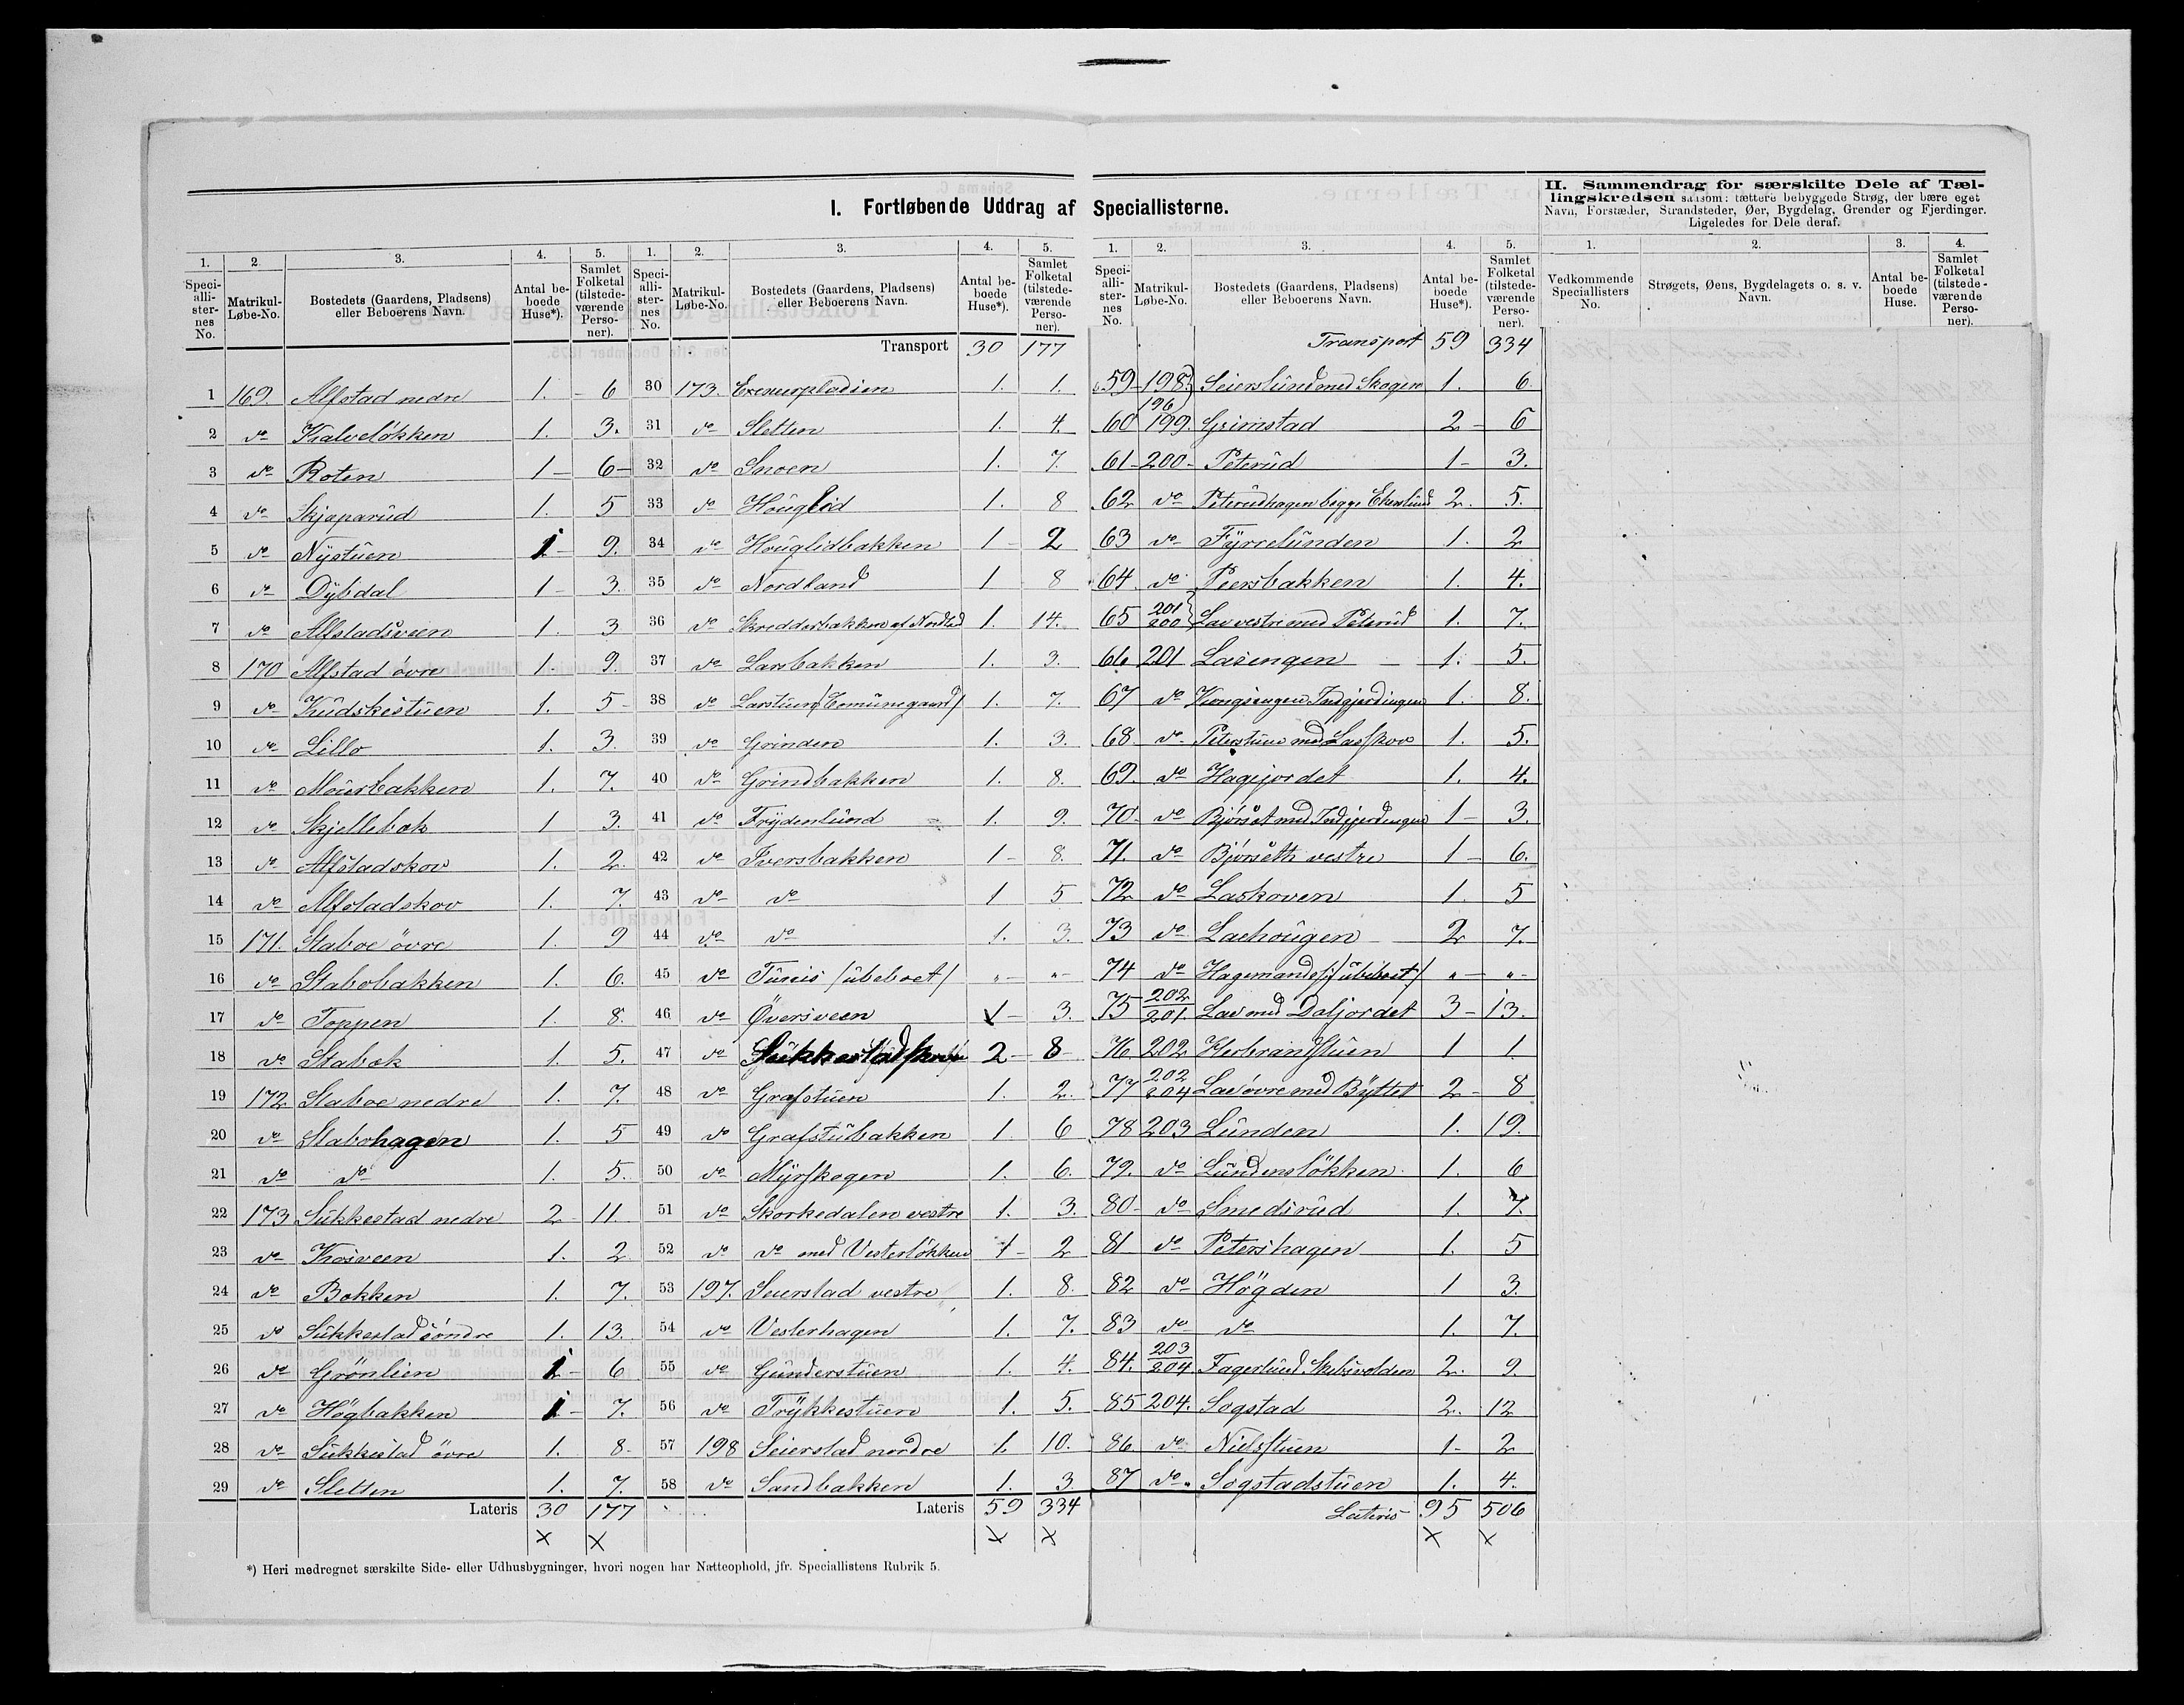 I. Fortløbende Uddrag af Speciallisterne.
II. Sammendrag for særskilte Dele af Tæl-
lingskredsen saasom: tættere bebyggede Strøg, der bære eget
Navn, Forstæder, Strandsteder, Øer, Bygdelag, Grender og Fjerdinger.
Ligeledes for Dele deraf.
1. 2. 3. 4. 5.
Speci-alli-ster-nes No. Matrikul-Løbe-No. Bostedets (Gaardens, Pladsens) eller Beboerens Navn. Antal be-boede Huse*). Samlet Folketal (tilstede-værende Perso-ner).
1 169. Alfstad nedre 1. 6
2 do Kalveløkken 1. 3.
3 do Roten 1 6
4 do Skjaparud 1. 5
5 do Nÿstuen 1 9.
6 do Dÿbdal 1 3.
7 do Alfstadsveen 1. 3
8 170 Alfstad övre 1. 9.
9 do Kudskestuen 1. 5
10 do Lillo 1. 3.
11 do Mousbakken 1. 7.
12 do Skjellebæk 1 3.
13 do Alfstadskov 1. 2
14 do Alfstadskov 1. 7.
15 171. Staboe övre 1. 9
16 do Stabobakken 1. 6.
17 do Toppen 1. 8.
18 do Stabæk 1. 5.
19 172 Staboe nedre 1. 7.
20 do Stabohagen 1. 5
21 do do 1. 5.
22 173 Sukkestad nedre 2 11
23 do Kosveen 1. 2
24 do Bakken 1. 7.
25 do Sukkestad söndre 1. 13.
26 do Grönlien 1 6
27 do Högbakken 1 7.
28 do Sukkestad övre 1. 8
29 do Sletten 1. 7.
Lateris 30 177
1. 2. 3. 4. 5.
Speci-alli-ster-nes No. Matrikul-Løbe-No. Bostedets (Gaardens, Pladsens) eller Beboerens Navn. Antal be-boede Huse*). Samlet Folketal (tilstede-værende Perso-ner).
Transport 30 177
30 173. 1. 1.
31 do Sletten 1. 4.
32 do Snoen 1. 7.
33 do Houglid 1. 8
34 do Houglidbakken 1 2
35 do Nordland 1 8
36 do Skredderbakken af Nordlad 1. 14.
37 do Larsbakken 1. 3.
38 do Larstuen /Comunegaard/ 1. 7.
39 do Grinden 1. 3.
40 do Grindbakken 1. 8.
41 do Frÿdenlund 1. 9.
42 do Iversbakken 1 8.
43 do do 1 5
44 do do 1. 3.
45 do /ubeboet/ " "
46 do Översveen 1 3.
47 do Sukkestadskoven 2 8
48 do Grafstuen 1. 2.
49 do Grafstubakken 1 6
50 do Mÿrskogen 1. 6.
51 do Skorkedalen vestre 1. 3.
52 do do med Vesterlökken 1 2
53 197. Seierstad vestre 1. 8.
54 do Vesterhagen 1. 7.
55 do Gunderstuen 1. 4.
56 do Trÿkkestuen 1. 5.
57 198 Seierstad nordre 1. 10.
58 do Sandbakken 1. 3
Lateris 59 334
1. 2. 3. 4. 5.
Speci-alli-ster-nes No. Matrikul-Løbe-No. Bostedets (Gaardens, Pladsens) eller Beboerens Navn. Antal be-boede Huse*). Samlet Folketal (tilstede-værende Perso-ner).
Transport 59 334
59 198. 196 Seierslund med Skogen 1. 6.
60 199 Grimstad 2 6
61 200 Peterud 1 3.
62 do Peterudhagen begge Ekerlund 2. 5.
63 do Fÿrrelunden 1. 2
64 do Peersbakken 1. 4.
65 201 200 Lae vestre med Peterud 1. 7.
66 201 Laeengen 1. 5.
67 do Kongsengen Indgjerdingen 1. 8.
68 do Peterstuen med Laeskov 1. 5.
69. do Hagejordet 1. 4.
70 do Bjørset med Indgjerdingen 1 3.
71. do Bjørseth vestre 1 6.
72 do Laskoven 1. 5
73 do Laehougen 2 7.
74 do /ubeboet/ " "
75 202 201. Lae med Daljordet 3 13.
76 202 Herbrandstuen 1 1.
77 202 204 Lae övre med Bÿttet 2 8
78 203 Lunden 1. 19.
79. do Lundenslökken 1. 6
80 do Smedsrud 1. 7.
81 do Petershagen 1. 5
82 do Högden 1 3.
83 do do 1. 7.
84. 203 204 Fagerlund 2. 9.
85 204. Sogstad 2. 12
86 do Nielsstuen 1 2
87 do Sogstadstuen 1. 4.
Lateris 95 506
1. 2. 3. 4.
Vedkommende Speciallisters No. Strøgets, Øens, Bygdelagets o. s. v. Navn. Antal be-boede Huse. Samlet Folketal (tilstede-værende Perso-ner).
*) Heri medregnet særskilte Side- eller Udhusbygninger, hvori nogen har Natteophold, jfr. Speciallistens Rubrik 5.